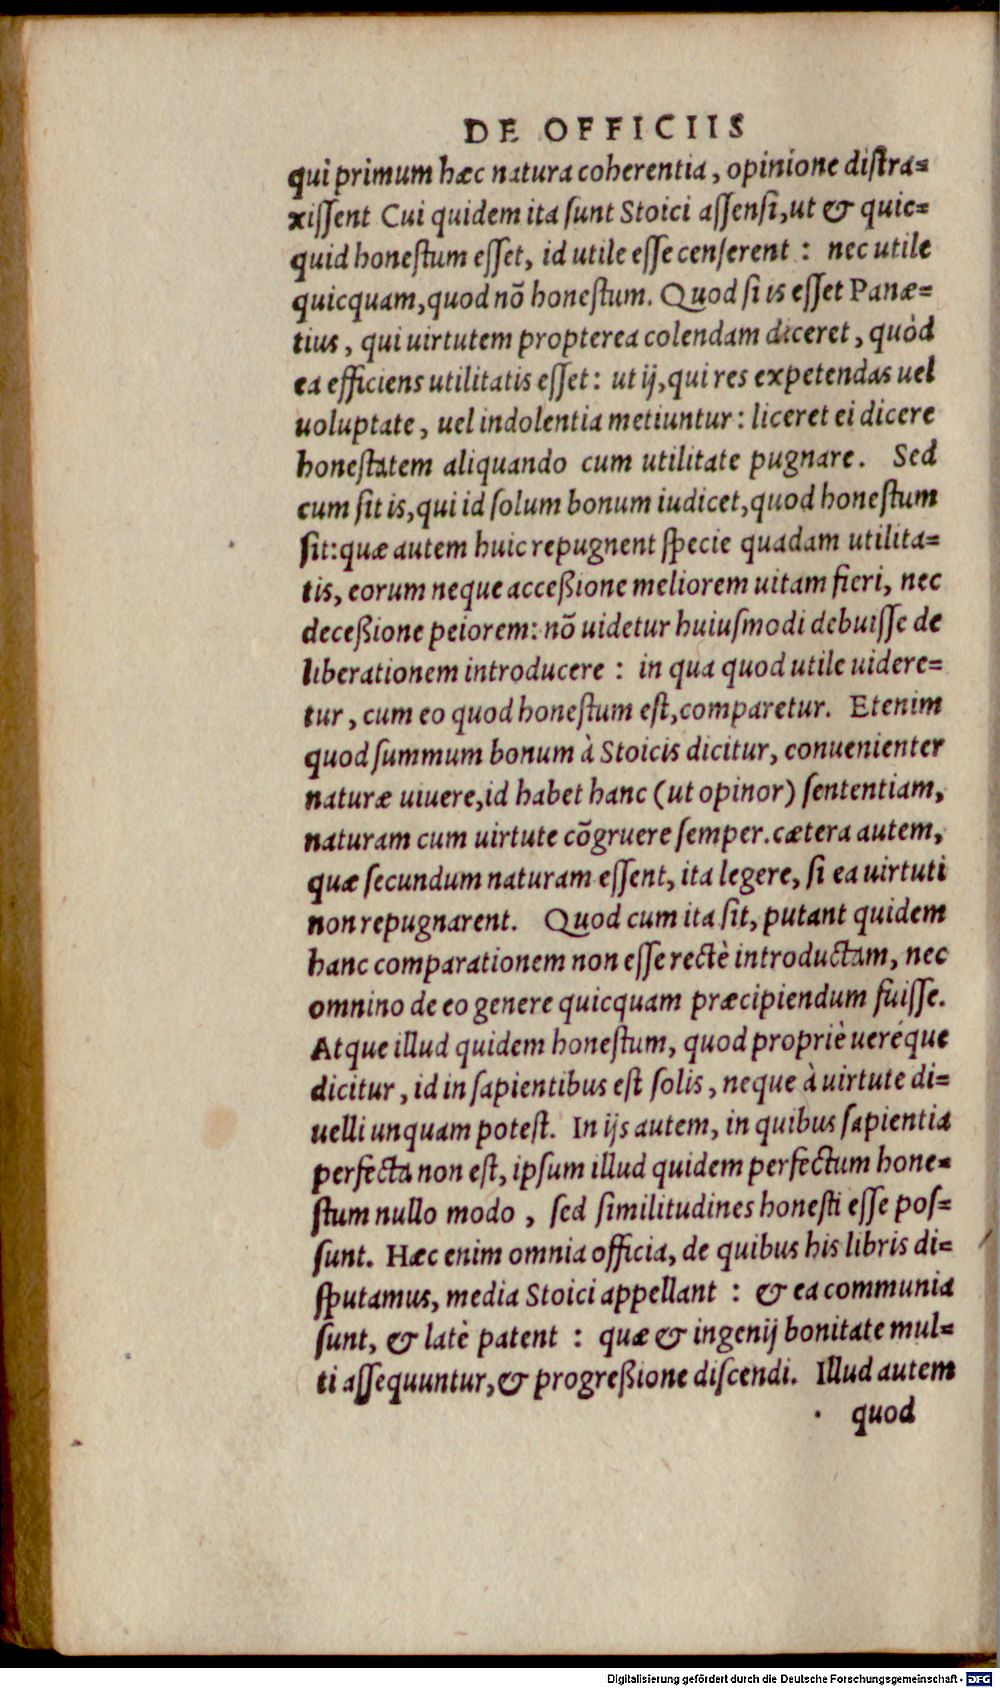 DE OFFICIIS
qui primum hæc natura coherentia, opinione distra=
xiſſent Cui quidem ita ſunt Stoici aſſenſi, ut & quic=
quid honeſtum eſſet, id utile eſſe cenſerent : nec utile
quicquam, quod nõ honeſtum. Quod ſi is eſſet Panæ=
tius, qui uirtutem propterea colendam diceret, quòd
ea efficiens utilitatis eſſet: ut ij, qui res expetendas uel
uoluptate, uel indolentia metiuntur: liceret ei dicere
honeſtatem aliquando cum utilitate pugnare. Sed
cum ſit is, qui id ſolum bonum iudicet, quod honeſtum
ſit: quæ autem huic repugnent ſpecie quadam utilita=
tis, eorum neque acceßione meliorem uitam fieri, nec
deceßione peiorem: nõ uidetur huiuſmodi debuiſſe de
liberationem introducere : in qua quod utile uidere=
tur, cum eo quod honeſtum eſt, comparetur. Etenim
quod ſummum bonum à Stoicis dicitur, conuenienter
naturæ uiuere, id habet hanc (ut opinor) ſententiam,
naturam cum uirtute cõgruere ſemper. cætera autem,
quæ ſecundum naturam eſſent, ita legere, ſi ea uirtuti
non repugnarent. Quod cum ita ſit, putant quidem
hanc comparationem non eſſe rectè introductam, nec
omnino de eo genere quicquam præcipiendum fuiſſe.
Atque illud quidem honeſtum, quod propriè ueréque
dicitur, id in ſapientibus eſt ſolis, neque à uirtute di=
uelli unquam poteſt. In ijs autem, in quibus ſapientia
perfecta non eſt, ipſum illud quidem perfectum hone=
ſtum nullo modo, ſed ſimilitudines honeſti eſſe poſ=
ſunt. Hæc enim omnia officia, de quibus his libris di=
ſputamus, media Stoici appellant : & ea communia
ſunt, & latè patent : quæ & ingenij bonitate mul=
ti aſſequuntur, & progreßione diſcendi. Illud autem
quod
Digitalisierung gefördert durch die Deutsche Forschungsgemeinschaft - DFG